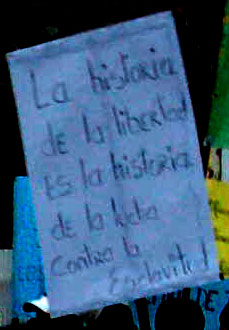 La historia
de la libertad
ES la historia
de la lucha
Contra la
Esclavitud